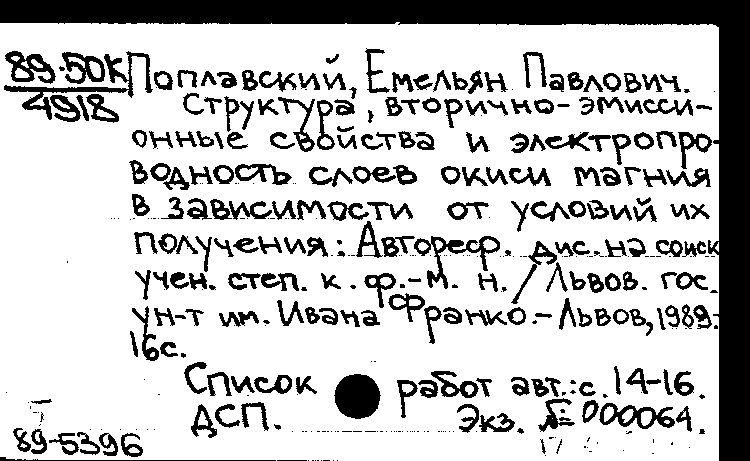 89-50К
4918
Поплавский, Емельян Павлович.
Структура, вторично-эмисси-
онные свойства и электропро-
водность слоев окиси магния
в зависимости от условий их
получения: Автореф. дис. на соиск
учен. степ. к. ф.-м. н. / Львов. гос.
ун-т им. Ивана Франко.- Львов, 1989.
16с.
Список работ авт.: с. 14-16.
ДСП. Экз. № 000064.
89-5396